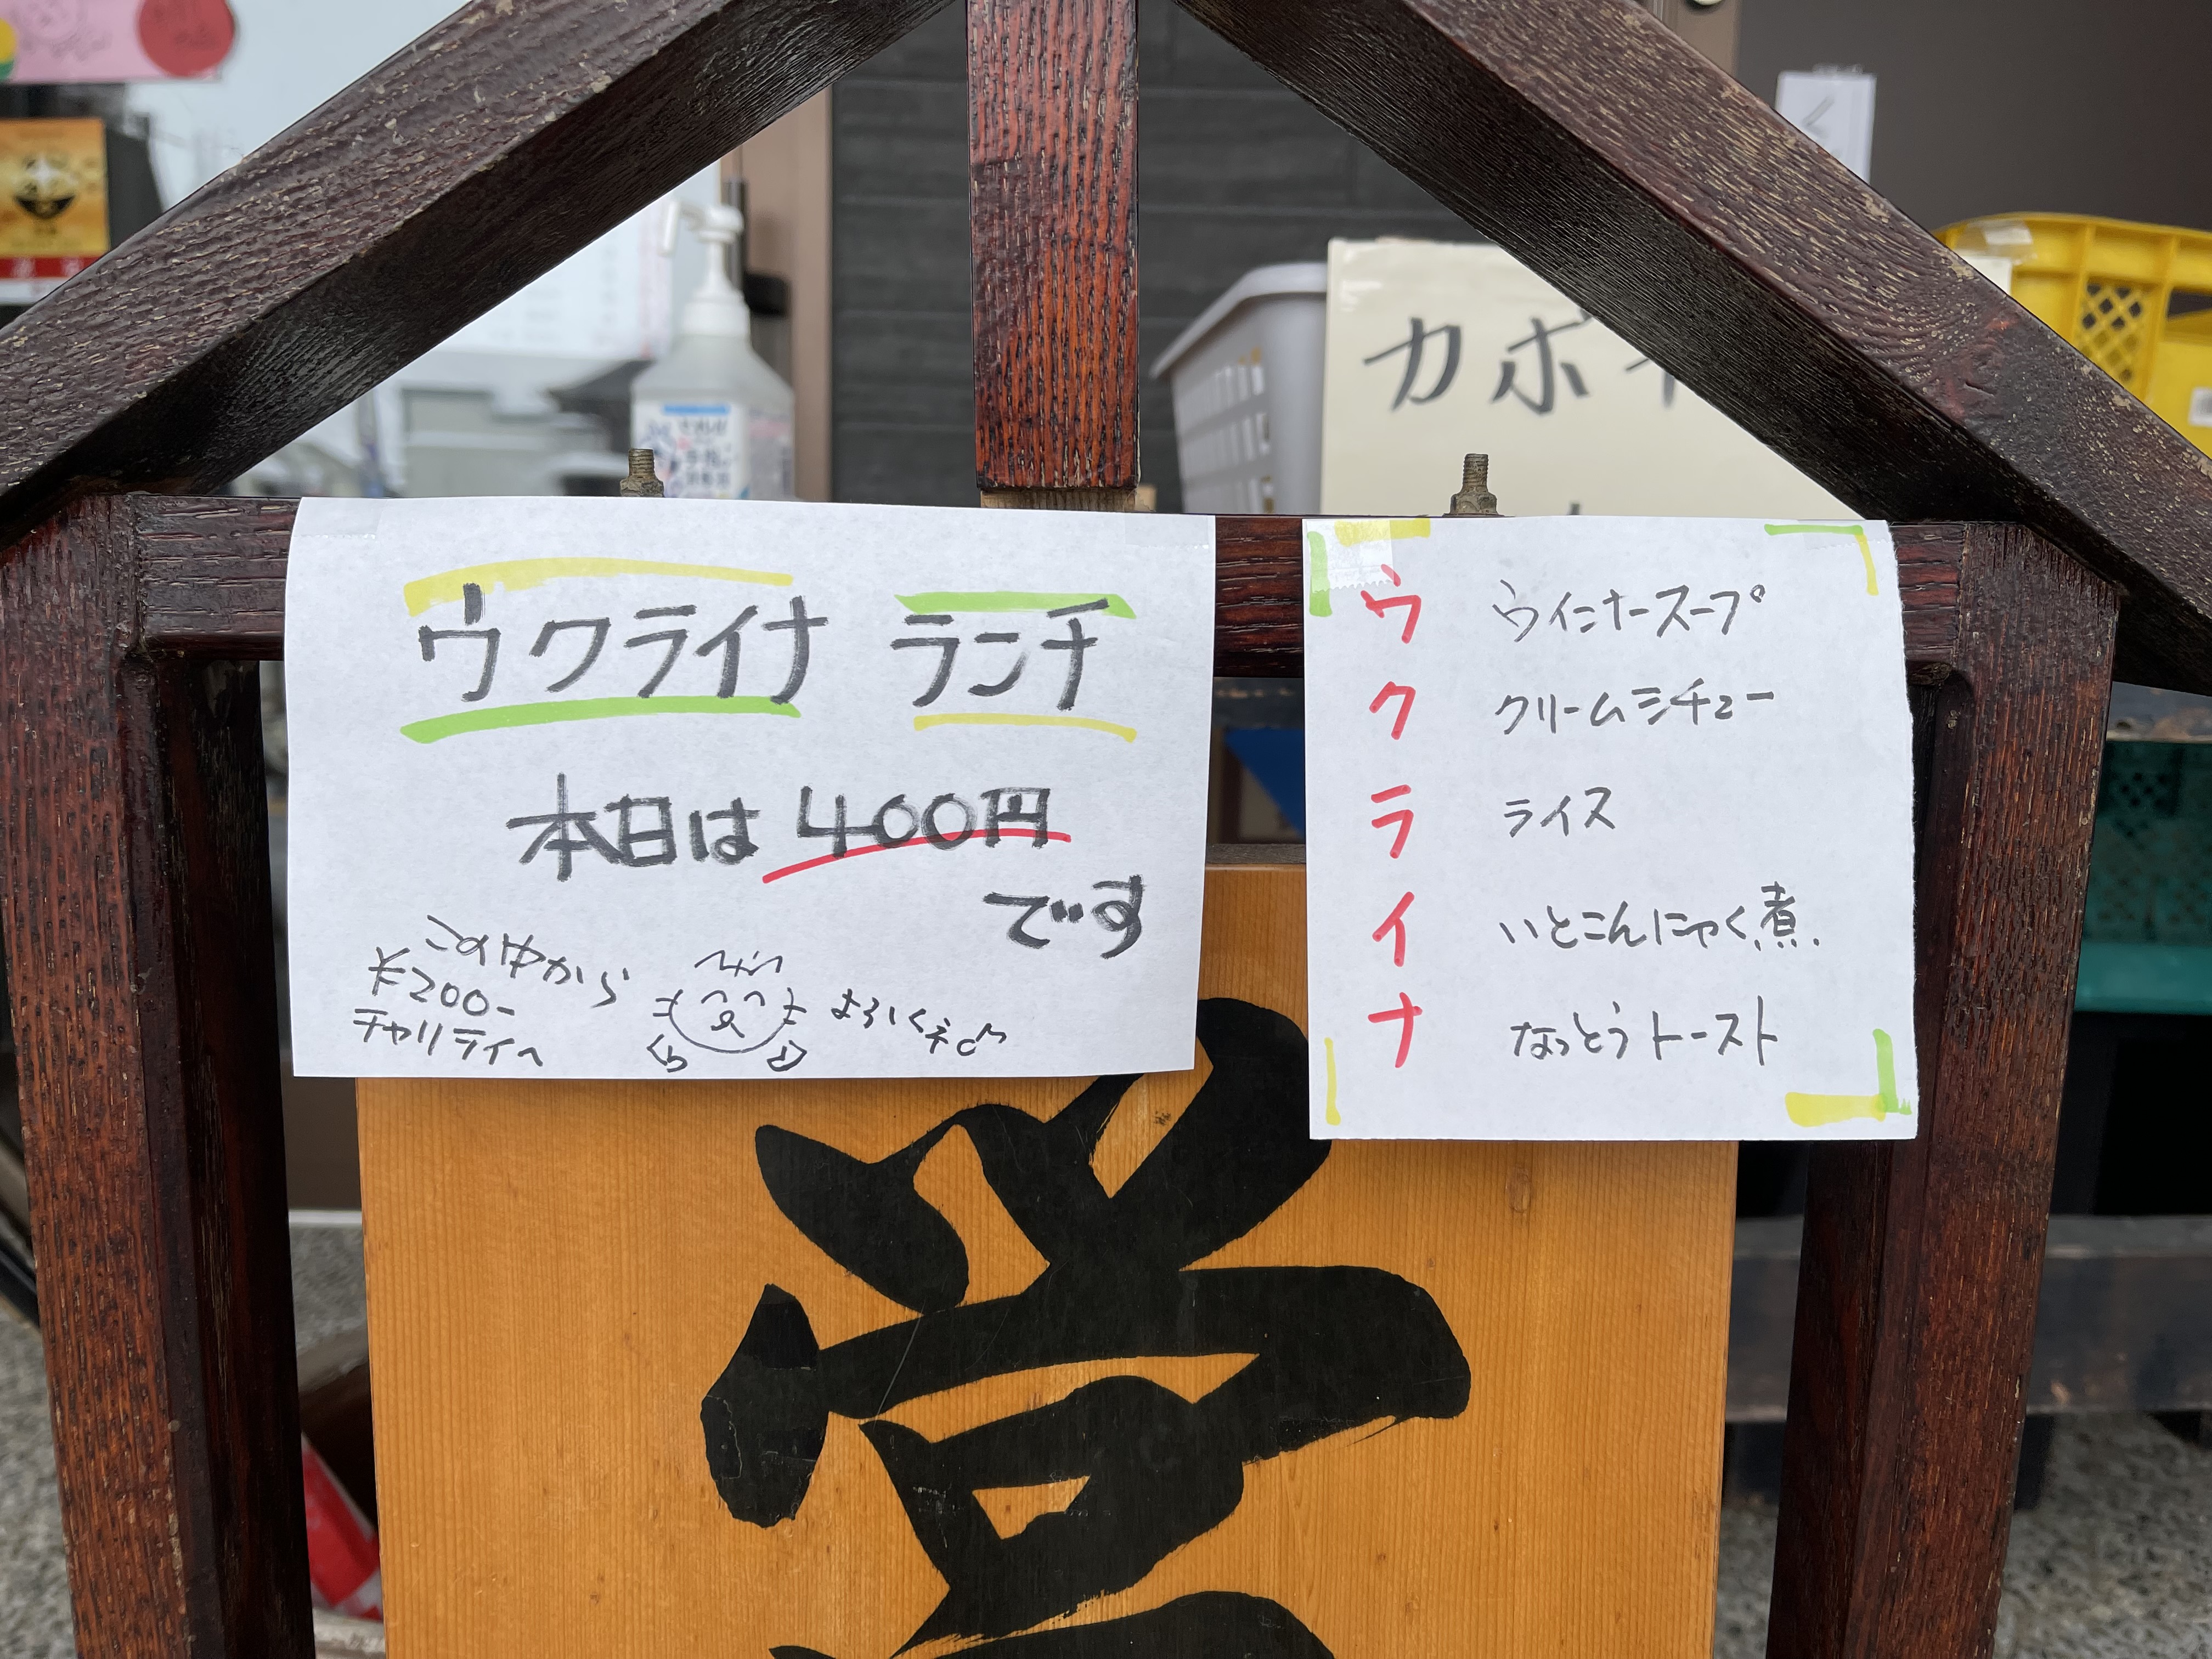 ウクライナ ランチ
本日は400円
です
この中から
¥200-
チャリティへ
よろしくネ♪
ウ ウインナースープ
ク クリームシチュー
ラ ライス
イ いとこんにゃく煮.
ナ なっとうトースト
カボ
営